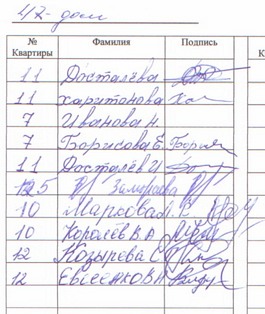 47 - дом
№ Квартиры Фамилия Подпись К
11 Досталёва
11 Харитонова Ха
7 Иванова Н
7 Борисова Е. Борис
11 Досталёв И
125
10 Маркова
10 Королёв В А
12 Козырева С
12 Евсеенков А